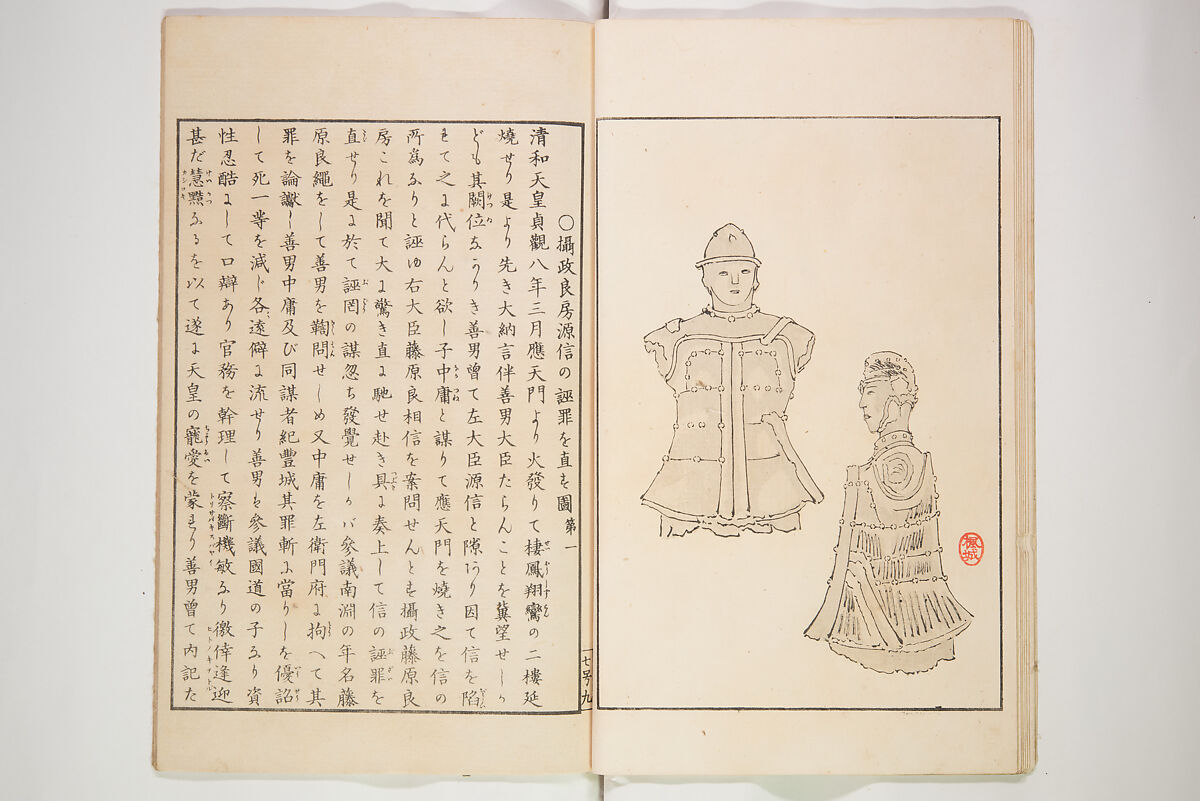 ○攝政良房源信の誣罪を直す圖 第一
清和天皇貞觀八年三月應天門より火發りて棲鳳翔鸞の二樓延
燒せり是より先き大納言伴善男大臣たらんことを冀望せしか
ども其闕位なかりき善男曾て左大臣源信と隙あり因て信を陷
れて之に代らんと欲し子中庸と謀りて應天門を燒き之を信の
所爲なりと誣ゆ右大臣藤原良相信を案問せんとす攝政藤原良
房これを聞て大に驚き直に馳せ赴き具に奏上して信の誣罪を
直せり是に於て誣罔の謀忽ち發覺せしかバ參議南淵の年名藤
原良繩をして善男を鞫問せしめ又中庸を左衛門府に拘へて其
罪を論讞し善男中庸及び同謀者紀豐城其罪斬に當りしを優詔
して死一等を減じ各遠僻に流せり善男も參議國道の子なり資
性忍酷にして口辯あり官務を幹理して察斷機敏なり徼倖逢迎
甚だ慧黠なるを以て遂に天皇の寵愛を蒙れり善男曾て内記た
七号九
楓城